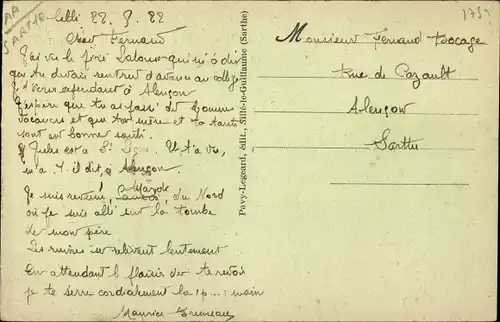 AA
SARTHE
1754
Sillé 22. 9. 22
Cher Fernand
J'ai vu le père Lalour qui m'a dit
que tu devais rentrer d'avance au collège
Je t'écris cependant à Alençon
J'espère que tu as passé de bonnes
vacances et que ta mère et ta tante
sont en bonne santé.
Jules est à St. Il t'a vu,
m'a-t-il dit, à Alençon.
Je suis revenu, Mardi, du Nord
où je suis allé sur la tombe
de mon père
Les ruines se relèvent lentement
En attendant le plaisir de te revoir
je te serre cordialement la main
Maurice
Pavy-Legeard, édit., Sillé-le-Guillaume (Sarthe)
Monsieur Fernand Bocage
rue de Cazault
Alençon
Sarthe